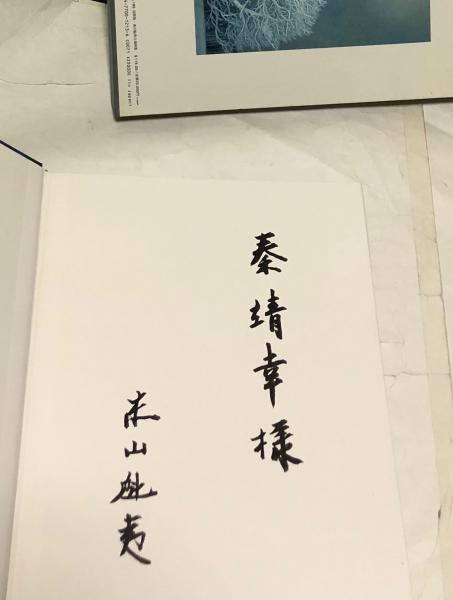 秦靖幸様
東山魁夷